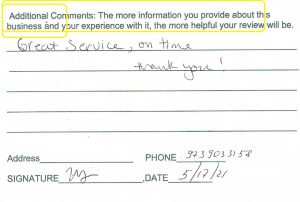 Additional Comments: The more information you provide about this
business and your experience with it, the more helpful your review will be.
Great Service, on time
thank you!
Address
PHONE 9739033158
SIGNATURE
DATE 5/17/21